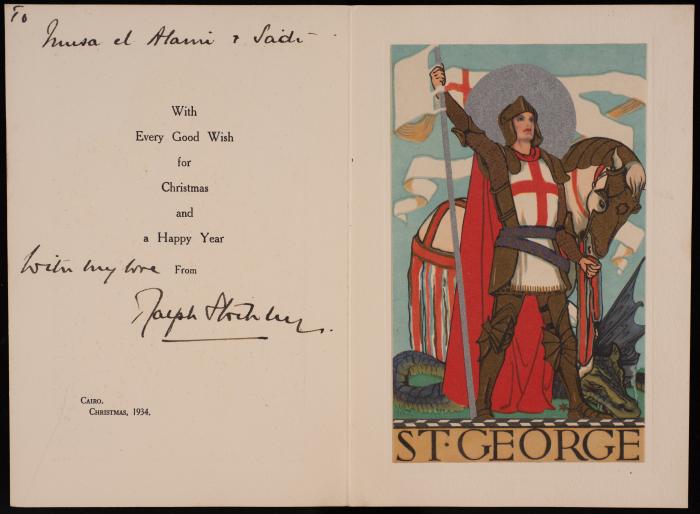 To
Musa el Alami & Sadi
With
Every Good Wish
for
Christmas
and
a Happy Year
With my love From
Ralph
Cairo.
Christmas, 1934.
ST·GEORGE